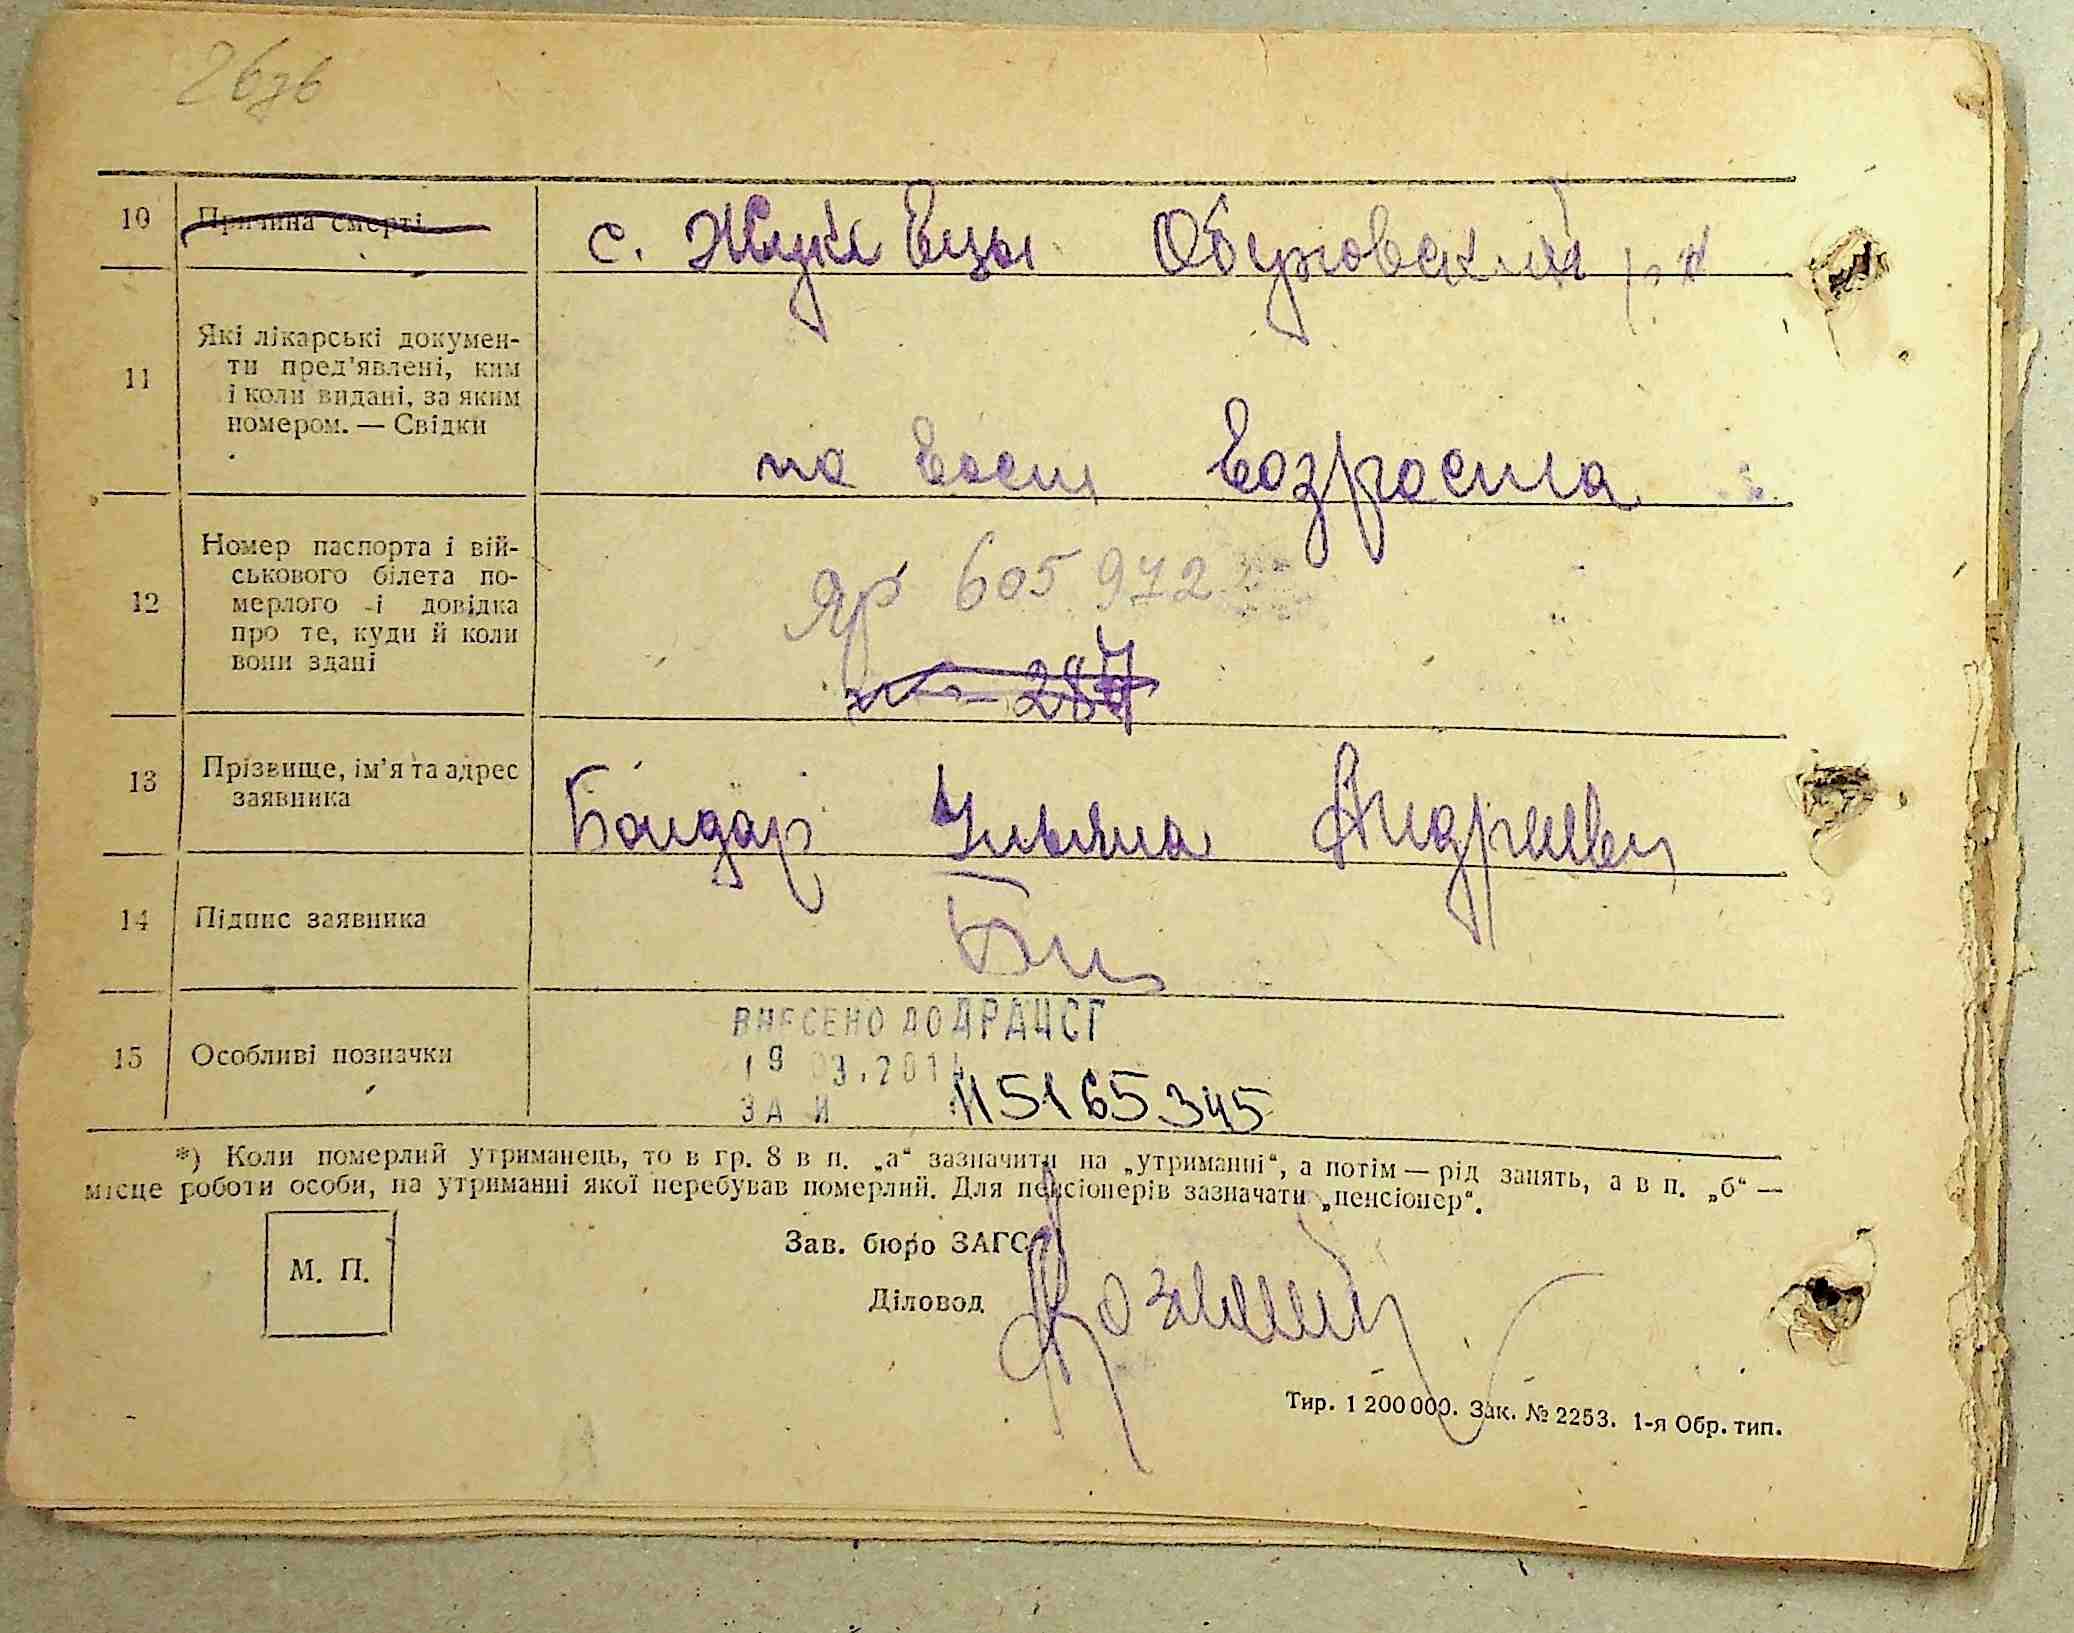 10 Причина смерти с. Жуковцы Обуховский р-н
11 Які лікарські докумен-
ти пред'явлені, ким
і коли видані, за яким
номером. — Свідки
по восп возроста
12 Номер паспорта і вій-
ськового білета по-
мерлого і довідка
про те, куди й коли
вони здані
ЯР 605972
287
13 Прізвище, ім'я та адрес
заявника
Бондар Ульяна Андреевн
14 Підпис заявника
15 Особливі позначки
ВНЕСЕНО ДО ДРАЦСГ
19 03.2014
ЗА № 115165345
*) Коли померлий утриманець, то в гр. 8 в п. „а“ зазначити на „утриманні“, а потім — рід занять, а в п. „б“ —
місце роботи особи, на утриманні якої перебував померлий. Для пенсіонерів зазначати „пенсіонер“.
М. П.
Зав. бюро ЗАГС
Діловод
Тир. 1 200 000. Зак. № 2253. 1-я Обр. тип.